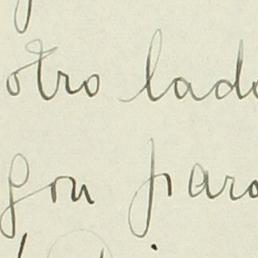 otro lado
gou para